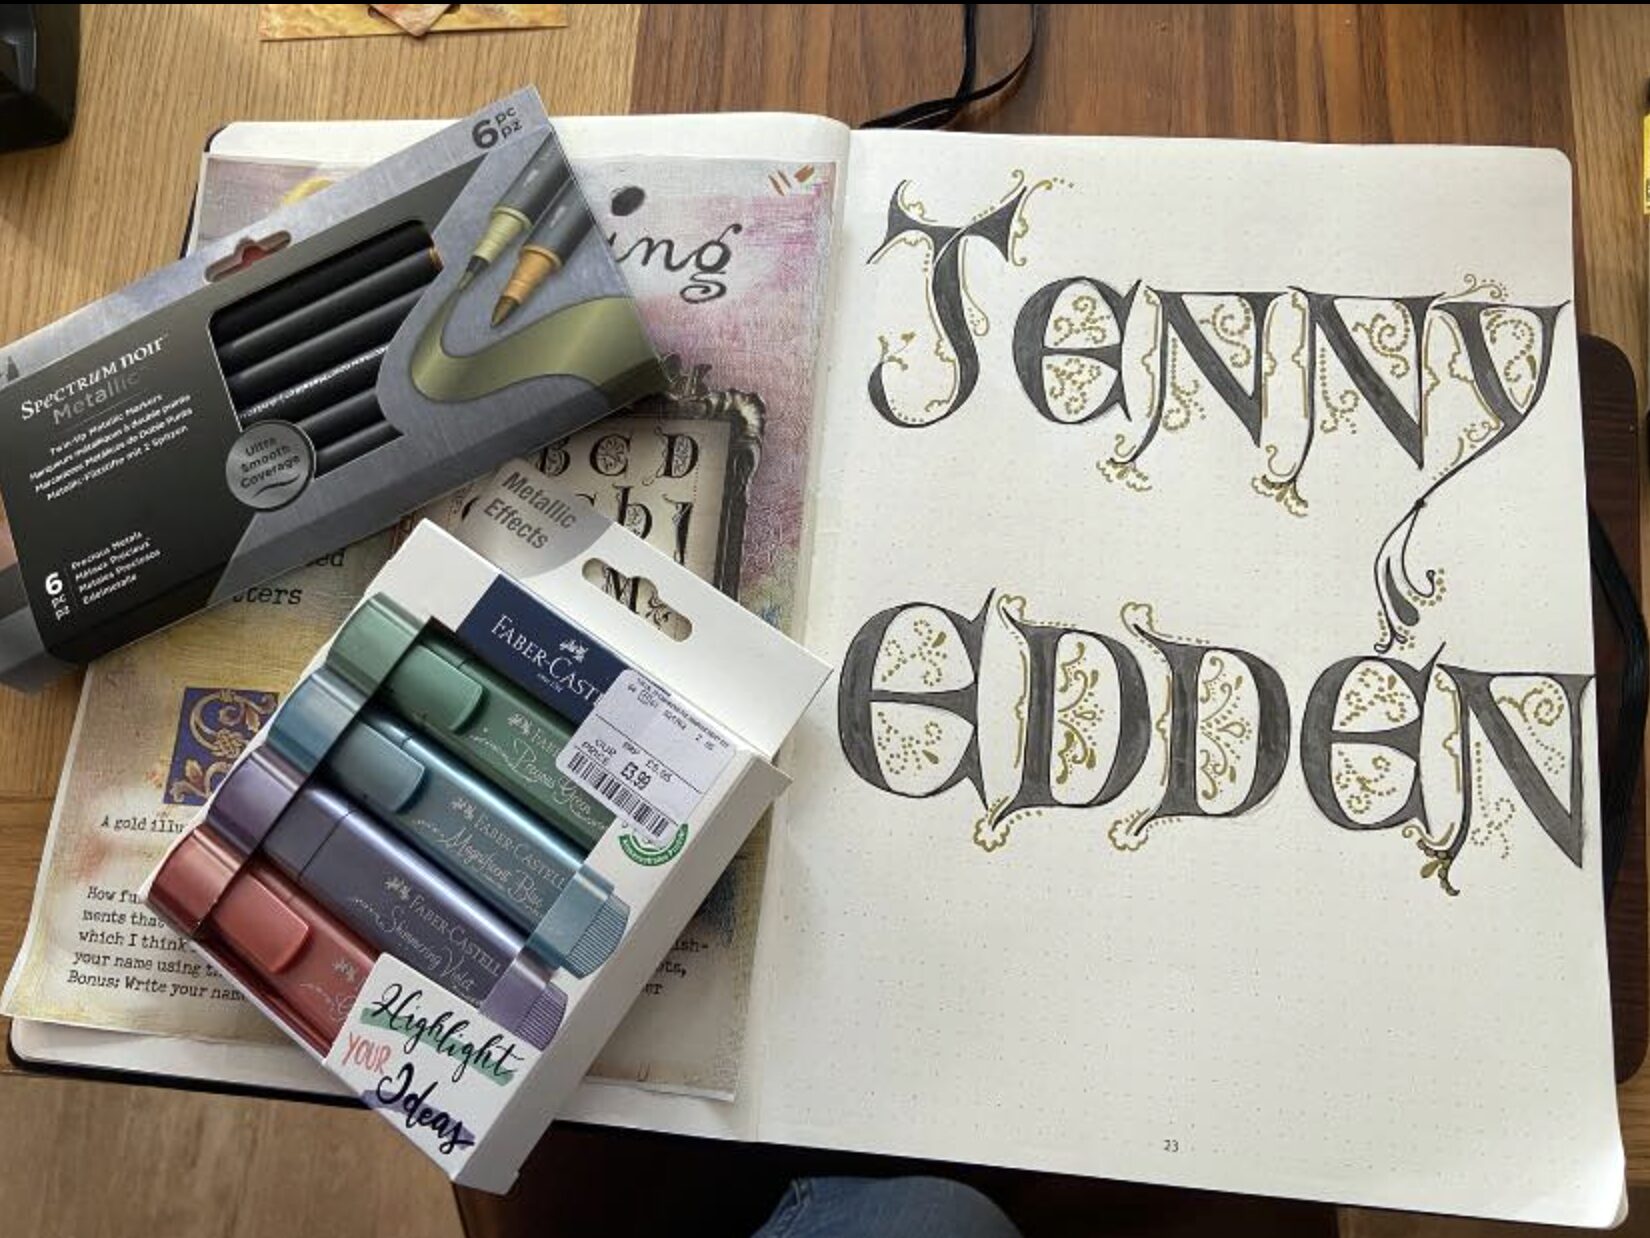 6 pc
pz
Spectrum noir
Metallic
Twin-Tip Metallic Markers
Marqueurs métalliques à double pointe
Marcadores Metálicos de Doble Punta
Metallic-Filzstifte mit 2 Spitzen
Ultra
Smooth
Coverage
6 pc
pz
Precious Metals
Métaux Précieux
Metales Preciosos
Edelmetalle
ing
B C D
M
tters
A gold illu
How fu
ments that
which I think
your name using th
Bonus: Write your name
Metallic
Effects
FABER-CASTELL
SINCE 1761
£5.95
OUR
PRICE
£3.99
Precious Green
FABER-CASTELL
Magnificent Blue
FABER-CASTELL
Shimmering Violet
Highlight
YOUR
Ideas
JENNY
EDDEN
23